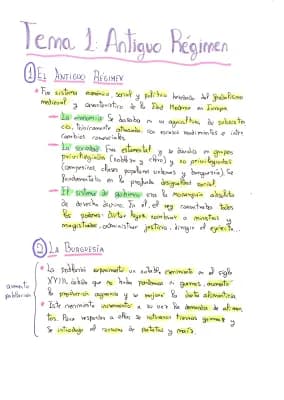 Tema 1: Antiguo Régimen
1 EL ANTIGUO RÉGIMEN
* Fue sistema económico, social y político heredado del feudalismo
medieval y característico de la Edad Moderna en Europa.
→ La economía: Se basaba en una agricultura de subsisten
cia, técnicamente atrasada, con escasos rendimientos e inter
cambios comerciales.
→ La sociedad: Era estamental y se dividía en grupos
privilegiados (nobleza y clero) y no privilegiados
(campesinos, clases populares urbanas y burguesía). Se
fundamentaba en la profunda desigualdad social.
→ El sistema de gobierno era la monarquía absoluta
de derecho divino. En él, el rey concentraba todos
los poderes: dictar leyes, nombrar a ministros y
magistrados, administrar justicia, dirigir el ejército...
2 LA BURGUESÍA
aumento
población
* La población experimentó un notable crecimiento en el siglo
XVIII debido que no hubo pandemias ni guerras, aumentó
la producción agraria y se mejoró la dieta alimenticia
* Este crecimiento incrementó a su vez la demanda de alimen
tos. Para responder a ellos se roturaron tierras yermas y
se introdujo el consumo de patatas y maíz.